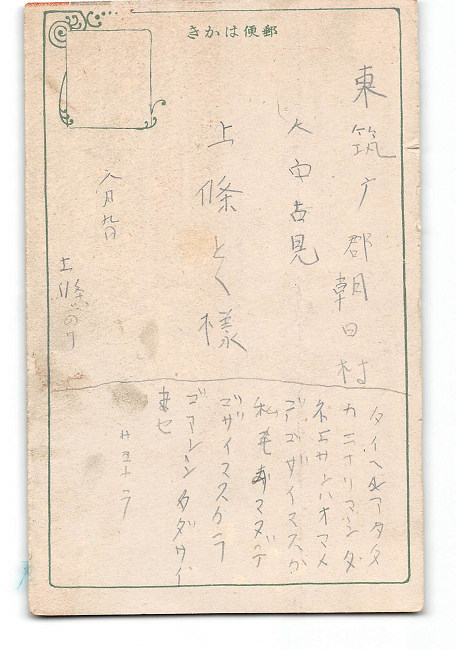 きかは便郵
東筑广郡朝日村
大字古見
上條とく様
八月九日
上條
タイヘンアタタ
カニナリマシタ
ネエサンハオマメ
デゴザイマスカ
私モマメデ
ゴザイマスカラ
ゴアンシンクダサイ
ませ
サヨナラ